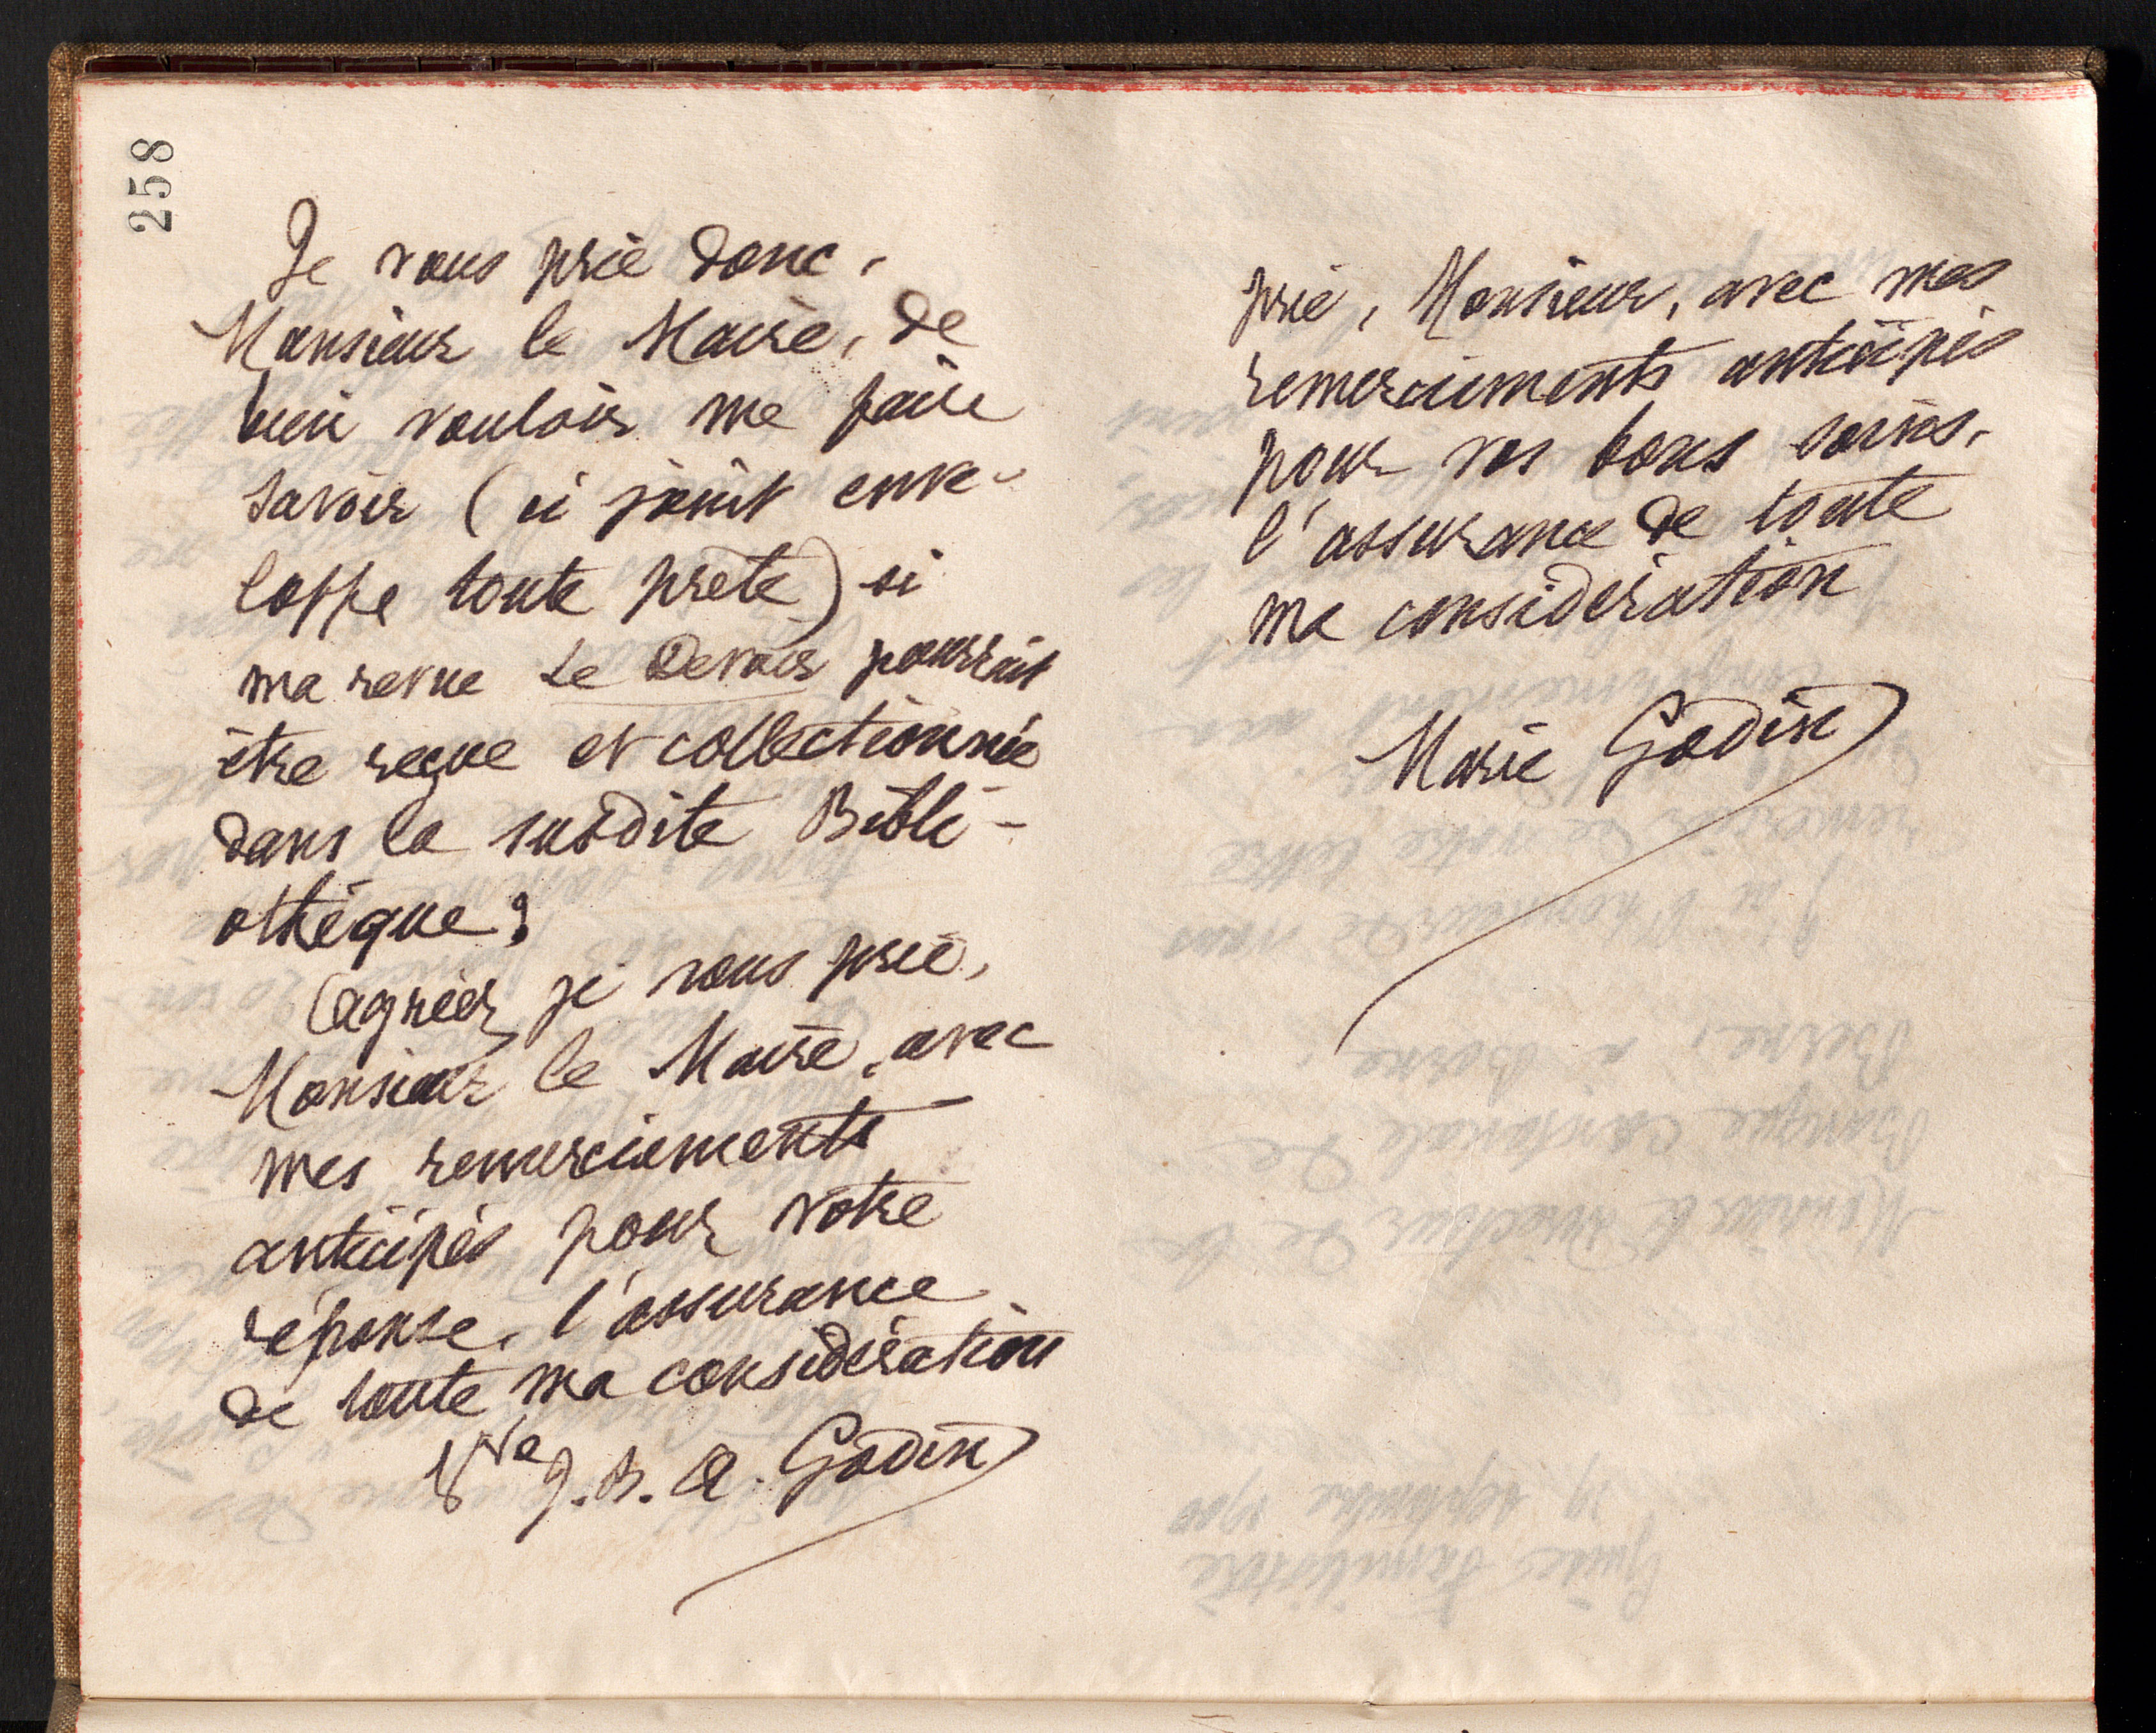 258
Je vous prie donc,
Monsieur le Maire, de
bien vouloir me faire
savoir (ci joint enve-
loppe toute prête) si
ma revue Le Devoir pourrait
être reçue et collectionnée
dans la susdite Bibli-
othèque?
Agréez, je vous prie,
Monsieur le Maire, avec
mes remerciements
anticipés pour votre
réponse, l'assurance
de toute ma considération
Vve J. B. A. Godin
prie, Monsieur, avec mes
remerciements anticipés
pour vos bons soins,
l'assurance de toute
ma considération
Marie Godin